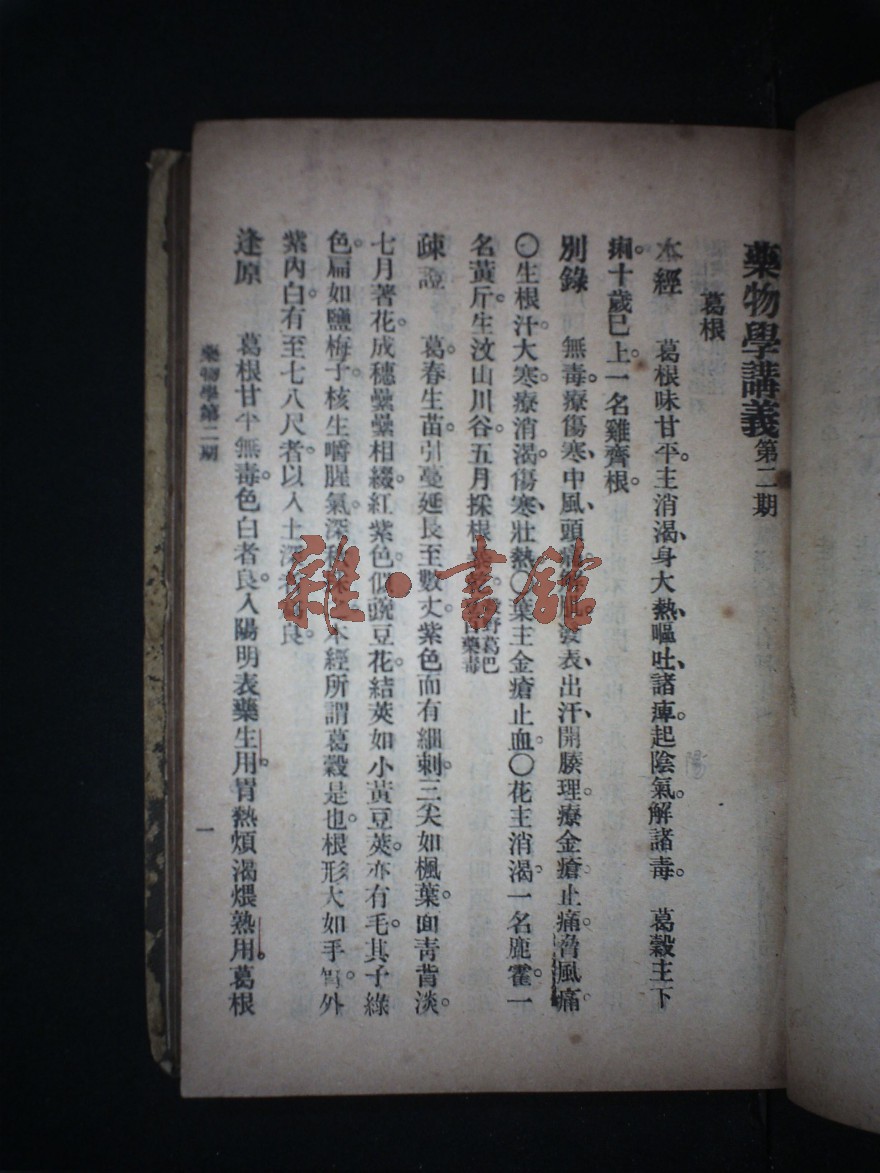 藥物學講義第二期
葛根
本經　葛根味甘平。主消渴、身大熱、嘔吐、諸痺。起陰氣。解諸毒。　葛穀主下
痢十歲已上。一名雞齊根。
別錄　無毒。療傷寒、中風、頭痛、解肌、發表、出汗、開腠理。療金瘡止痛。脅風痛。
〇生根汁大寒。療消渴。傷寒壯熱。〇葉主金瘡止血。〇花主消渴。一名鹿霍。一
名黃斤。生汶山川谷。五月採根。野葛巴百藥毒
疎證　葛春生苗。引蔓延長至數丈。紫色而有細刺。三尖如楓葉。面青背淡。
七月著花。成穗纍纍相綴。紅紫色。似豌豆花。結莢如小黃豆莢。亦有毛。其子綠
色。扁如鹽梅子核。生嚼腥氣。深秋本經所謂葛穀是也。根形大如手臂。外
紫內白。有至七八尺者。以入土深者良。
逢原　葛根甘平無毒。色白者良。入陽明表藥生用。胃熱煩渴煨熟用。葛根
藥物學第二期
一
雜·書館
陽